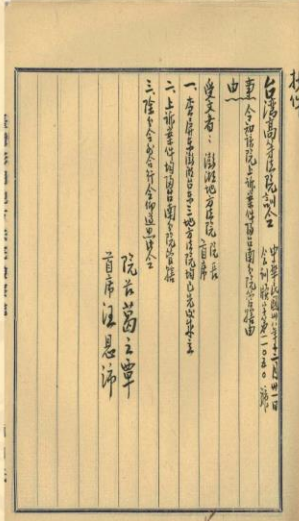 抄件
台灣高等法院訓令 中華民國卅八年十二月卅一日
令訓牘字第一〇五〇號
事 令知該院上訴案件歸台南分院管轄由
由
受文者：澎湖地方法院院長
首席
一、查屏東澎湖台東三地方法院均已先後成立
二、上訴案件均歸台南分院管轄
三、除分令外合行令仰遵照此令
院長葛之覃
首席汪恩沛